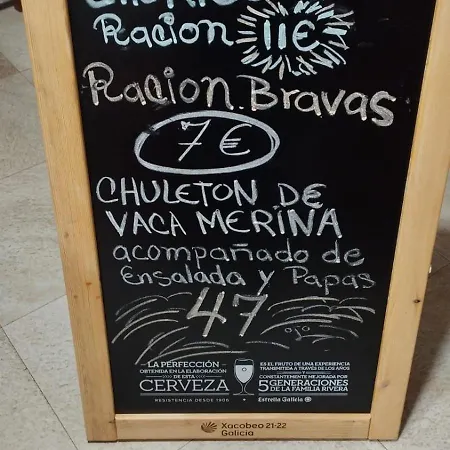 Racion 11€
Racion Bravas
7€
CHULETON DE
VACA MERINA
acompañado de
Ensalada y Papas
47
LA PERFECCIÓN
OBTENIDA EN LA ELABORACIÓN
DE ESTA
CERVEZA
RESISTENCIA DESDE 1906
ES EL FRUTO DE UNA EXPERIENCIA
TRANSMITIDA A TRAVÉS DE LOS AÑOS
Y
CONSTANTEMENTE MEJORADA POR
5 GENERACIONES
DE LA FAMILIA RIVERA
Estrella Galicia
Xacobeo 21·22
Galicia